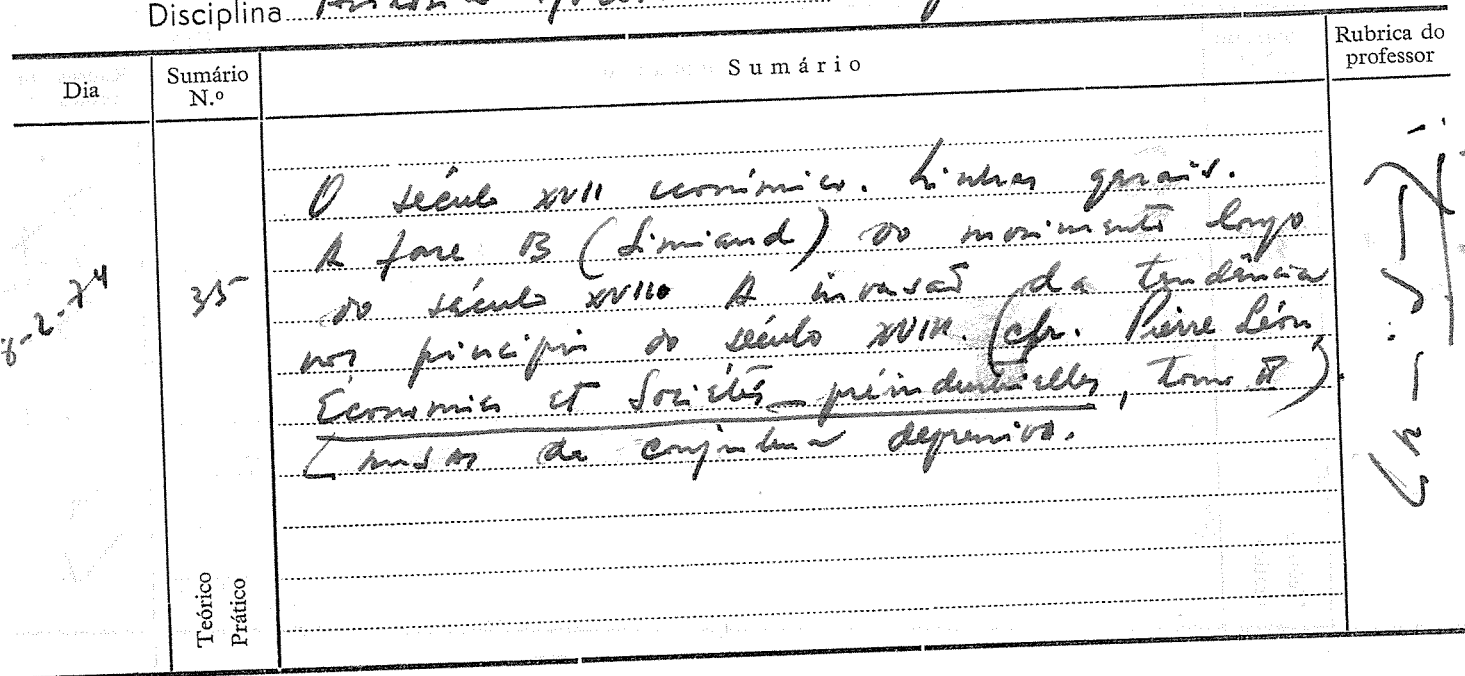 Disciplina
Dia
Sumário N.º
Sumário
Rubrica do professor
8-2-74
35
O século XVII económico. Linhas gerais.
A fase B (Simiand) do movimento longo
do século XVII. A invasaõ da tendência
nos princípios do século XVIII. (cfr. Pierre Léon,
Économies et Sociétés préindustrielles, tomo II)
Causas da conjuntura depressiva.
Teórico
Prático